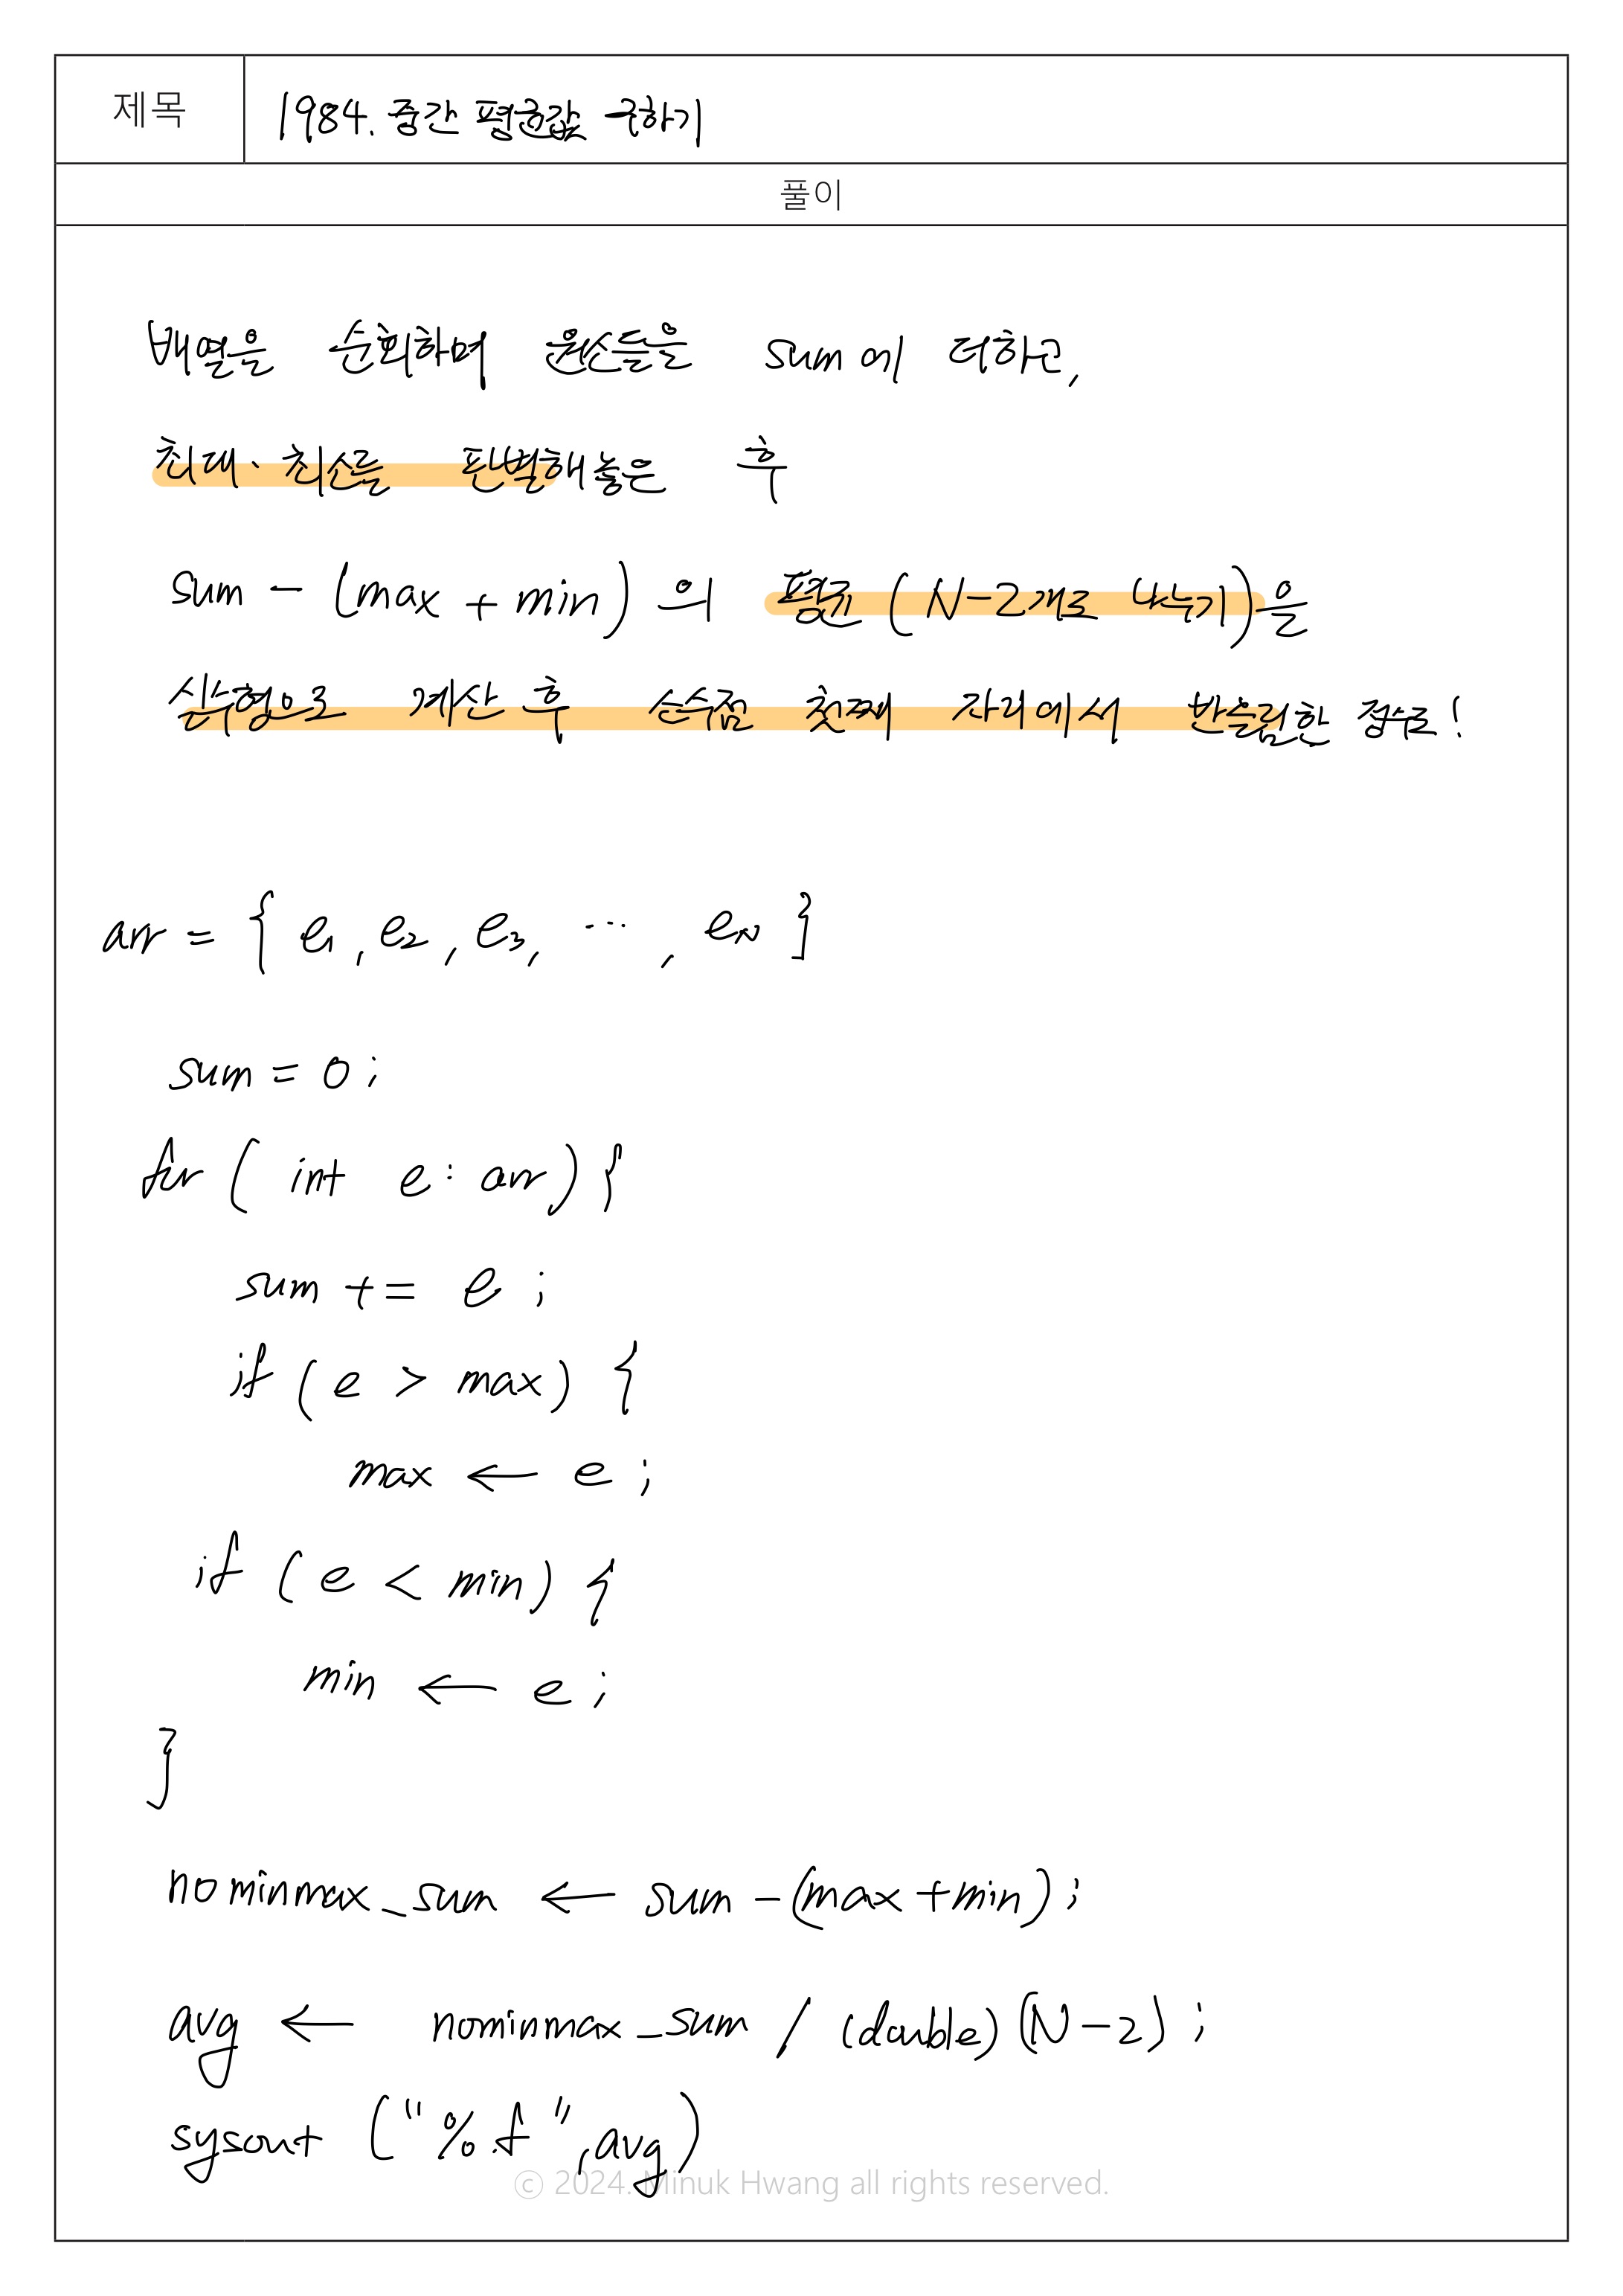 제목
1984. 중간 평균값 구하기
풀이
배열을 순회하며 원소들을 sum에 더하는,
최대·최소를 판별해놓은 후
sum - (max + min) 의 평균 (N-2개로 나누기)을
실수형으로 계산 후 소수점 첫째 자리에서 반올림한 정수로!
arr = { e1, e2, e3, ···, eN }
sum = 0;
for ( int e : arr ) {
sum += e ;
if ( e > max ) {
max ← e ;
if ( e < min ) {
min ← e ;
}
nominmax_sum ← sum - (max + min) ;
avg ← nominmax_sum / (double) (N-2) ;
sysout ("%.f", avg)
© 2024. Minuk Hwang all rights reserved.